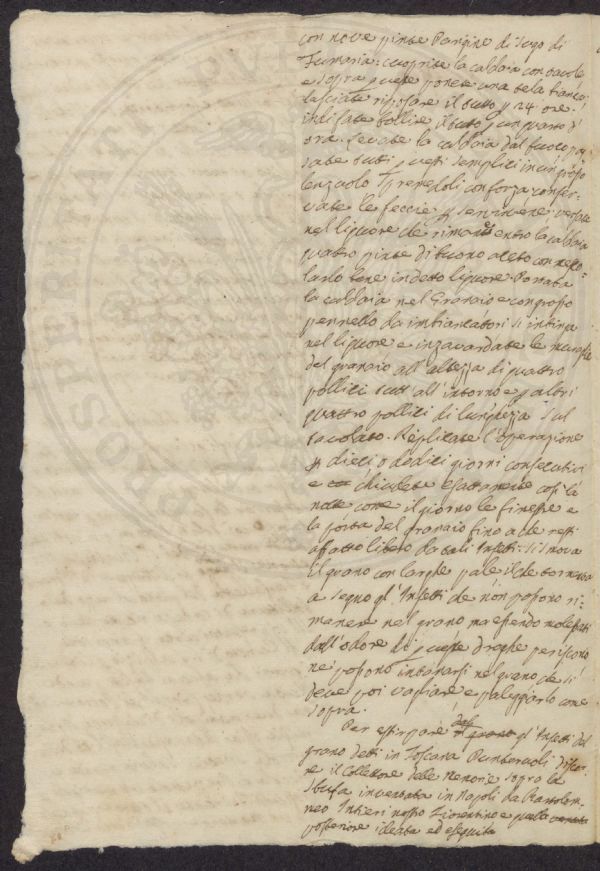 con nove pinte Pargine di Sugo di
Fumaria: cuoprite la caldaia con tavole
e sopra queste ponete una tela bianca
lasciate riposare il tutto p 24 ore.
indi fate bollire il tutto p un quarto d'
ora. Levate la caldaia dal fuoco
sate tutti questi semplici in un grosso
lenzuolo Spremetoli con forza conser-
vate le feccie p servirvene versate
nel liquore che rimane entro la caldaia
quattro pinte di buono aceto con mesco-
larlo bene in detto liquore. Portata
la caldaia nel Granaio e con grosso
pennello da imbiancatori si intinga
nel liquore e inzavardate le muraglie
del granaio all'altezza di quattro
pollici tutt'all'intorno e p altri
quattro pollici di lunghezza sul
tavolato. Replicate l'operazione
p dieci o dodici giorni consecutivi
e chiudete esattamente così la
notte come il giorno le finestre e
la porta del granaio fino a che resti
affatto libero da tali Insetti. Si smova
il grano con larghe pale il che tormenta
a segno gl'Insetti che non possono ri-
manere nel grano ma essendo molestati
dall'odore di queste droghe periscono
ne possono intanarsi nel grano che si
deve poi vagliare e paleggiarlo come
sopra.
Per estirpare dal grano gl'Insetti del
grano detti in Toscana Punteruoli
re il Collettore delle Memorie sopra la
Stufa inventata in Napoli da Bartolom-
meo Intieri nostro Fiorentino e
posteriore ideata ed eseguita
PROSPERITATI PUBLICAE